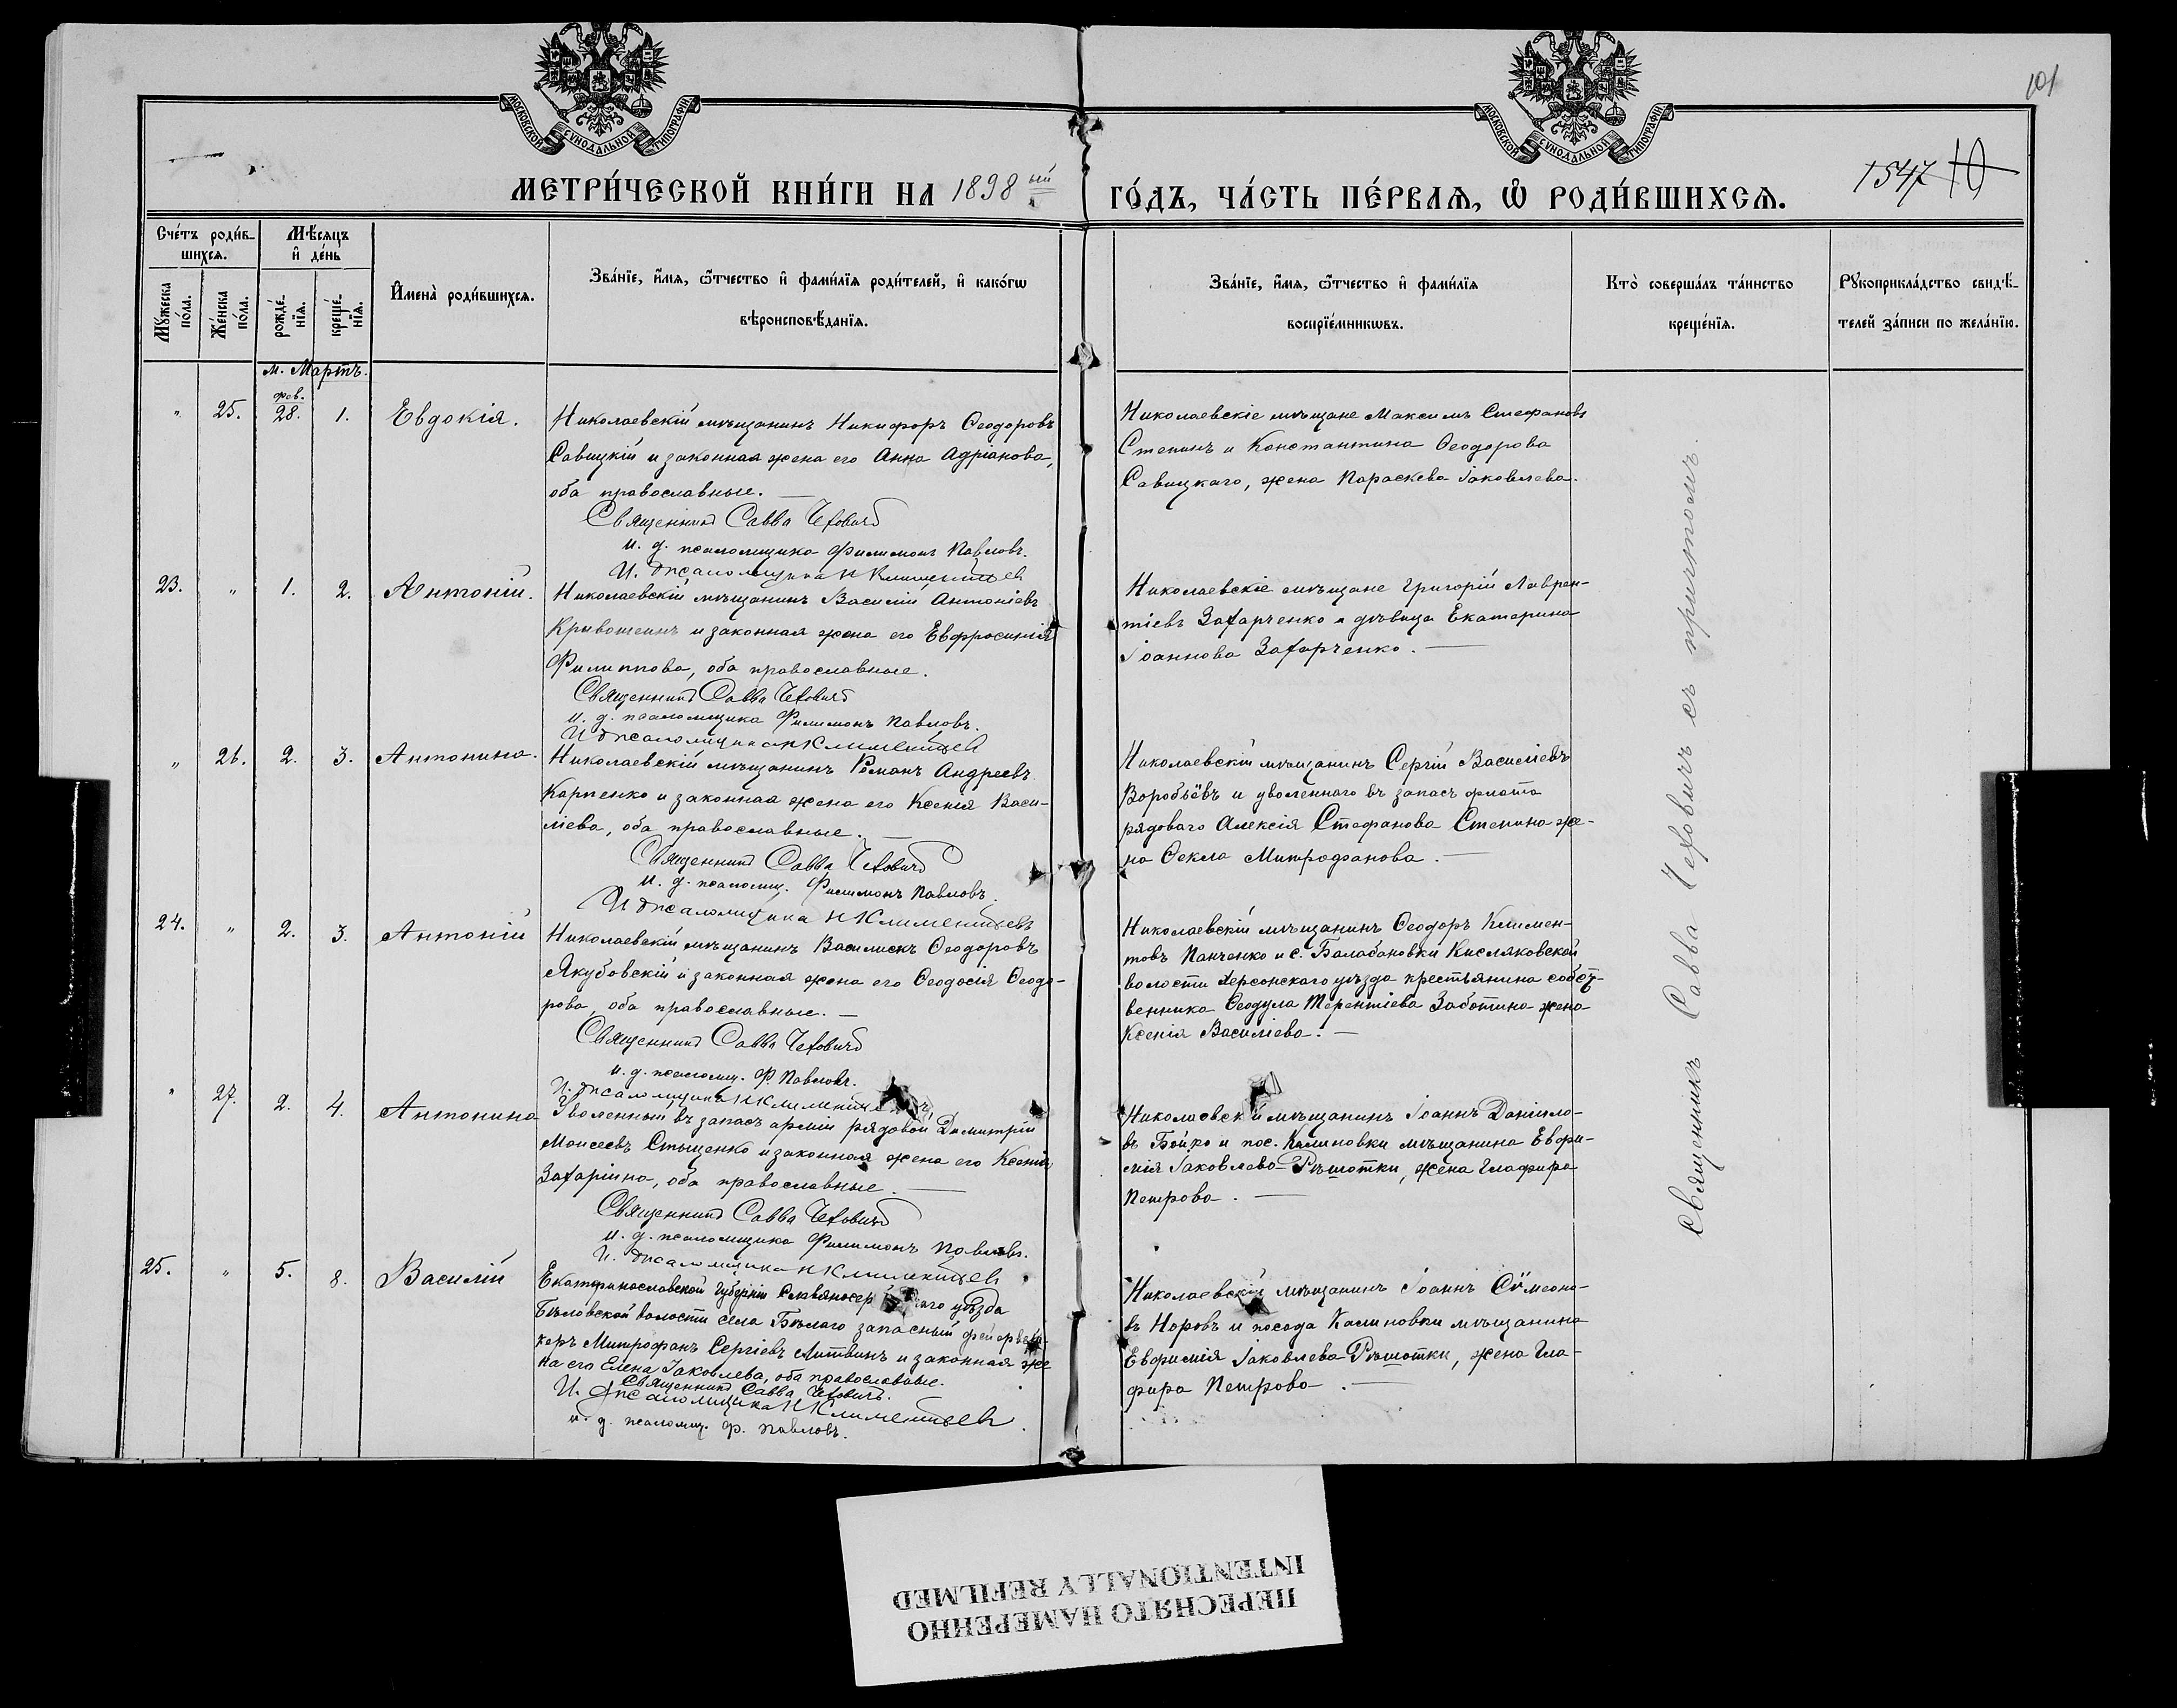 МОСКОВСКОЙ СѴНОДАЛЬНОЙ ТИПОГРАФІИ
МОСКОВСКОЙ СѴНОДАЛЬНОЙ ТИПОГРАФІИ
101
МЕТРИ́ЧЕСКОЙ КНИ́ГИ НА 1898ый ГО́ДЪ, ЧА́СТЬ ПЕ́РВАѦ, Ѡ҆ РОДИ́ВШИХСѦ.
1547 10
Сче́тъ роди́в-
шихсѧ.
Мꙋ́жеска
по́ла.
Же́нска
по́ла.
Мѣ́сяцъ
и҆ де́нь
рожде́-
нїѧ.
креще́-
нїѧ.
И҆мена̀ роди́вшихсѧ.
Зва́нїе, и҆́мѧ, ѻ҆́тчество и҆ фами́лїѧ роди́телей, и҆ како́гѡ
вѣроисповѣ́данїѧ.
Зва́нїе, и҆́мѧ, ѻ҆́тчество и҆ фами́лїѧ
воспрїе́мникѡвъ.
Кто̀ соверша́лъ та́инство
креще́нїѧ.
Рꙋкоприкла́дство свидѣ́-
телей за́писи по жела́нїю.
м. Мартъ.
фев.
" 25. 28. 1. Евдокія.
Николаевскій мѣщанинъ Никифоръ Ѳеодоровъ
Савицкій и законная жена его Анна Адріанова,
оба православные.
Священникъ Савва Чеховичъ
и. д. псаломщика Филимонъ Павловъ.
И. д псаломщика Н Климентьев
Николаевскіе мѣщане Максимъ Стефановъ
Степинъ и Константина Ѳеодорова
Савицкаго, жена Параскева Іаковлева.
23. " 1. 2. Антоній.
Николаевскій мѣщанинъ Василій Антоніевъ
Кривошеинъ и законная жена его Евфросинія
Филиппова, оба православные.
Священникъ Савва Чеховичъ
и. д. псаломщика Филимонъ Павловъ.
И д псаломщика Н Климентьев
Николаевскіе мѣщане Григорій Лаврен-
тіевъ Захарченко и дѣвица Екатерина
Іоаннова Захарченко.
" 26. 2. 3. Антонина.
Николаевскій мѣщанинъ Романъ Андреевъ
Карпенко и законная жена его Ксенія Васи-
ліева, оба православные.
Священникъ Савва Чеховичъ
и. д. псаломщ. Филимонъ Павловъ.
И д псаломщика Н Климентьевъ
Николаевскій мѣщанинъ Сергій Василіевъ
Воробьёвъ и уволеннаго въ запасъ флота
рядоваго Алексія Стефанова Степина же-
на Ѳекла Митрофанова.
24. " 2. 3. Антоній
Николаевскій мѣщанинъ Василискъ Ѳеодоровъ
Якубовскій и законная жена его Ѳеодосія Ѳеодо-
рова, оба православные.
Священникъ Савва Чеховичъ
и. д. псаломщ. Ф. Павловъ.
И. д псаломщика Н Климентьевъ
Николаевскій мѣщанинъ Ѳеодоръ Климен-
товъ Панченко и с. Балабановки Кисляковской
волости Херсонскаго уѣзда крестьянина собст-
венника Ѳеодула Терентіева Заботина жена
Ксенія Василіева.
" 27. 2. 4. Антонина
Уволенный въ запасъ арміи рядовой Димитрій
Моисеевъ Стыщенко и законная жена его Ксенія
Захаріина, оба православные.
Священникъ Савва Чеховичъ
и. д. псаломщика Филимонъ Павловъ.
И. д псаломщика Н Климентьев
Николаевскій мѣщанинъ Іоаннъ Даніило-
въ Бойко и пос. Калиновки мѣщанина Евфи-
мія Іаковлева Рѣшотки, жена Глафира
Петрова.
25. " 5. 8. Василій
Екатеринославской губерніи Славяносербскаго уѣзда
Бѣловской волости села Бѣлаго запасный фейервер-
керъ Митрофанъ Сергіевъ Литвинъ и законная же
на его Елена Іаковлева, оба православные.
Священникъ Савва Чеховичъ.
И. д псаломщика Н Климентьев
и. д. псаломщ. Ф. Павловъ.
Николаевскій мѣщанинъ Іоаннъ Сѵмеоно-
въ Норовъ и посада Калиновки мѣщанина
Евфимія Іаковлева Рѣшотки, жена Гла-
фира Петрова.
Священникъ Савва Чеховичъ съ причтомъ.
ПЕРЕСНЯТО НАМЕРЕННО
INTENTIONALLY REFILMED